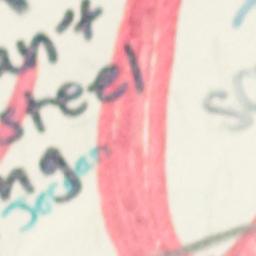 an't
steel
ng
Jordan
so